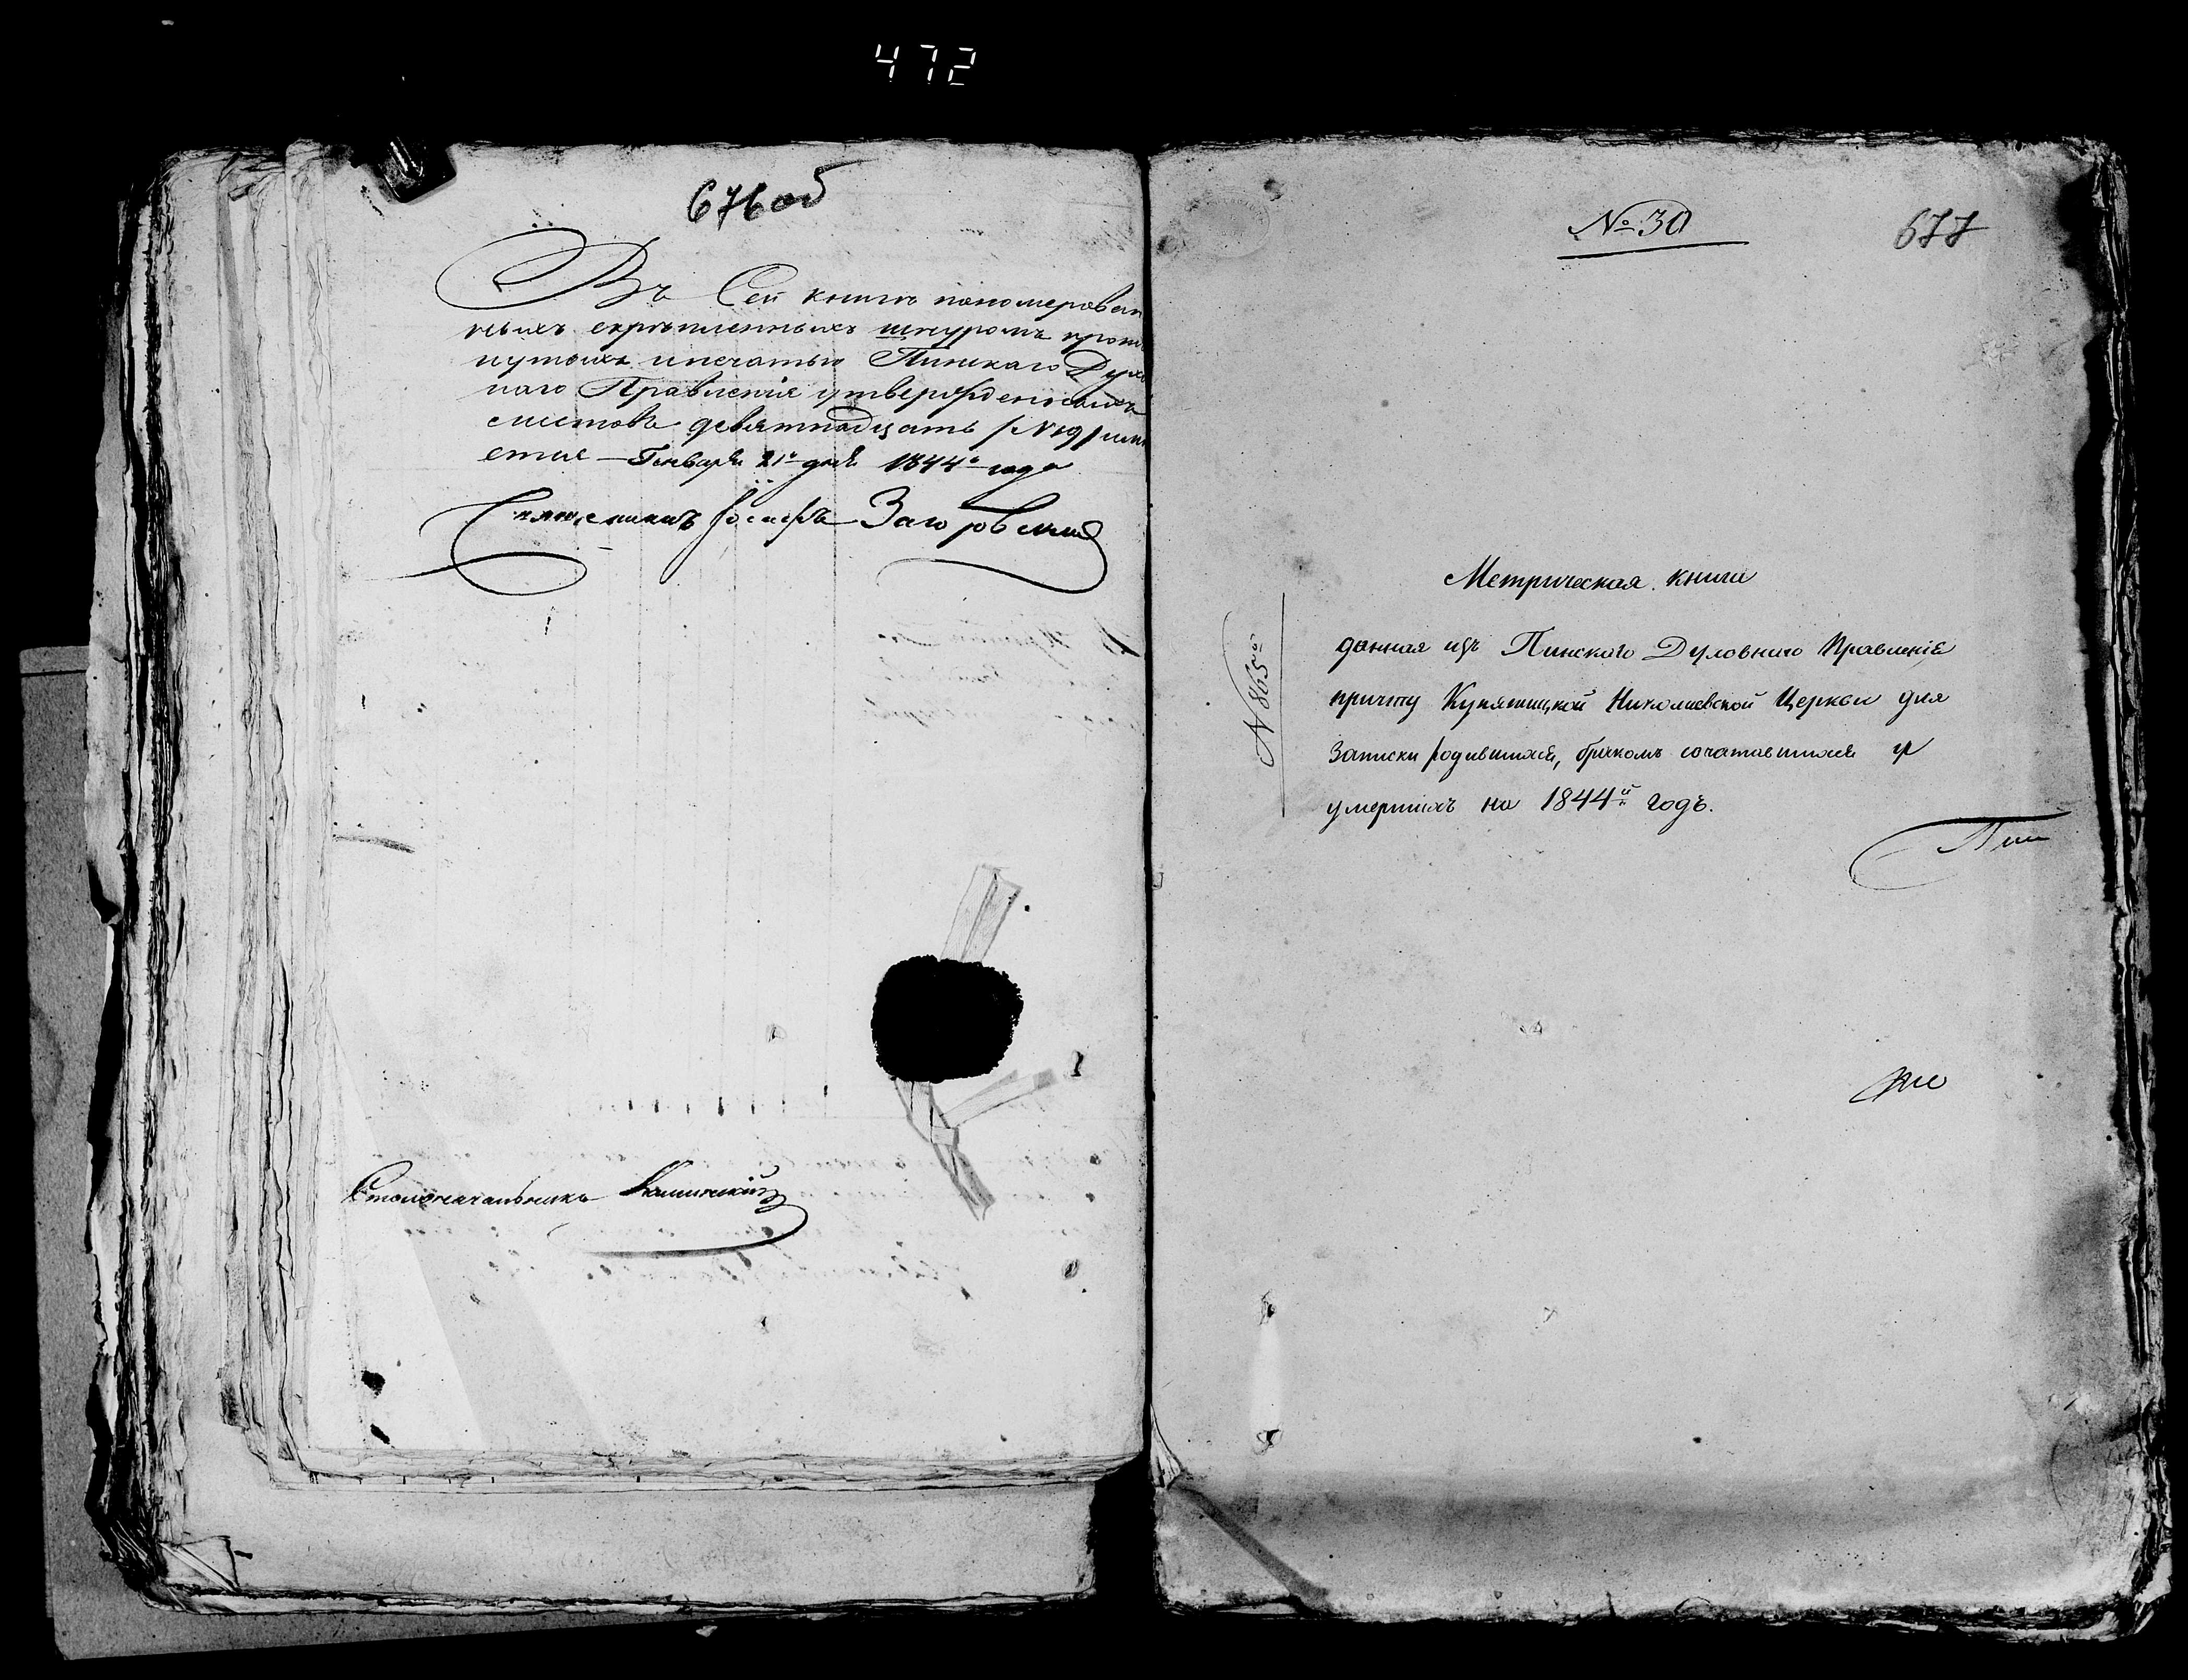 472
676 об
Въ Сей книгѣ пономерован
ныхъ скрѣпленныхъ шнуромъ прош
нутыхъ и печатью Пинскаго Духо
наго Правленія утвержденныхъ
листовъ девятнадцать /№19/
Генваря 21го дня 1844го года
Священникъ Іосифъ Загоровскій
Столоначальникъ
№ 30
677
Метрическая книга
данная изъ Пинскаго Духовнаго Правленія
причту Купятицкой Николаевской Церкви для
записки родившихся, бракомъ сочетавшихся и
умершихъ на 1844й годъ.
№ 865й